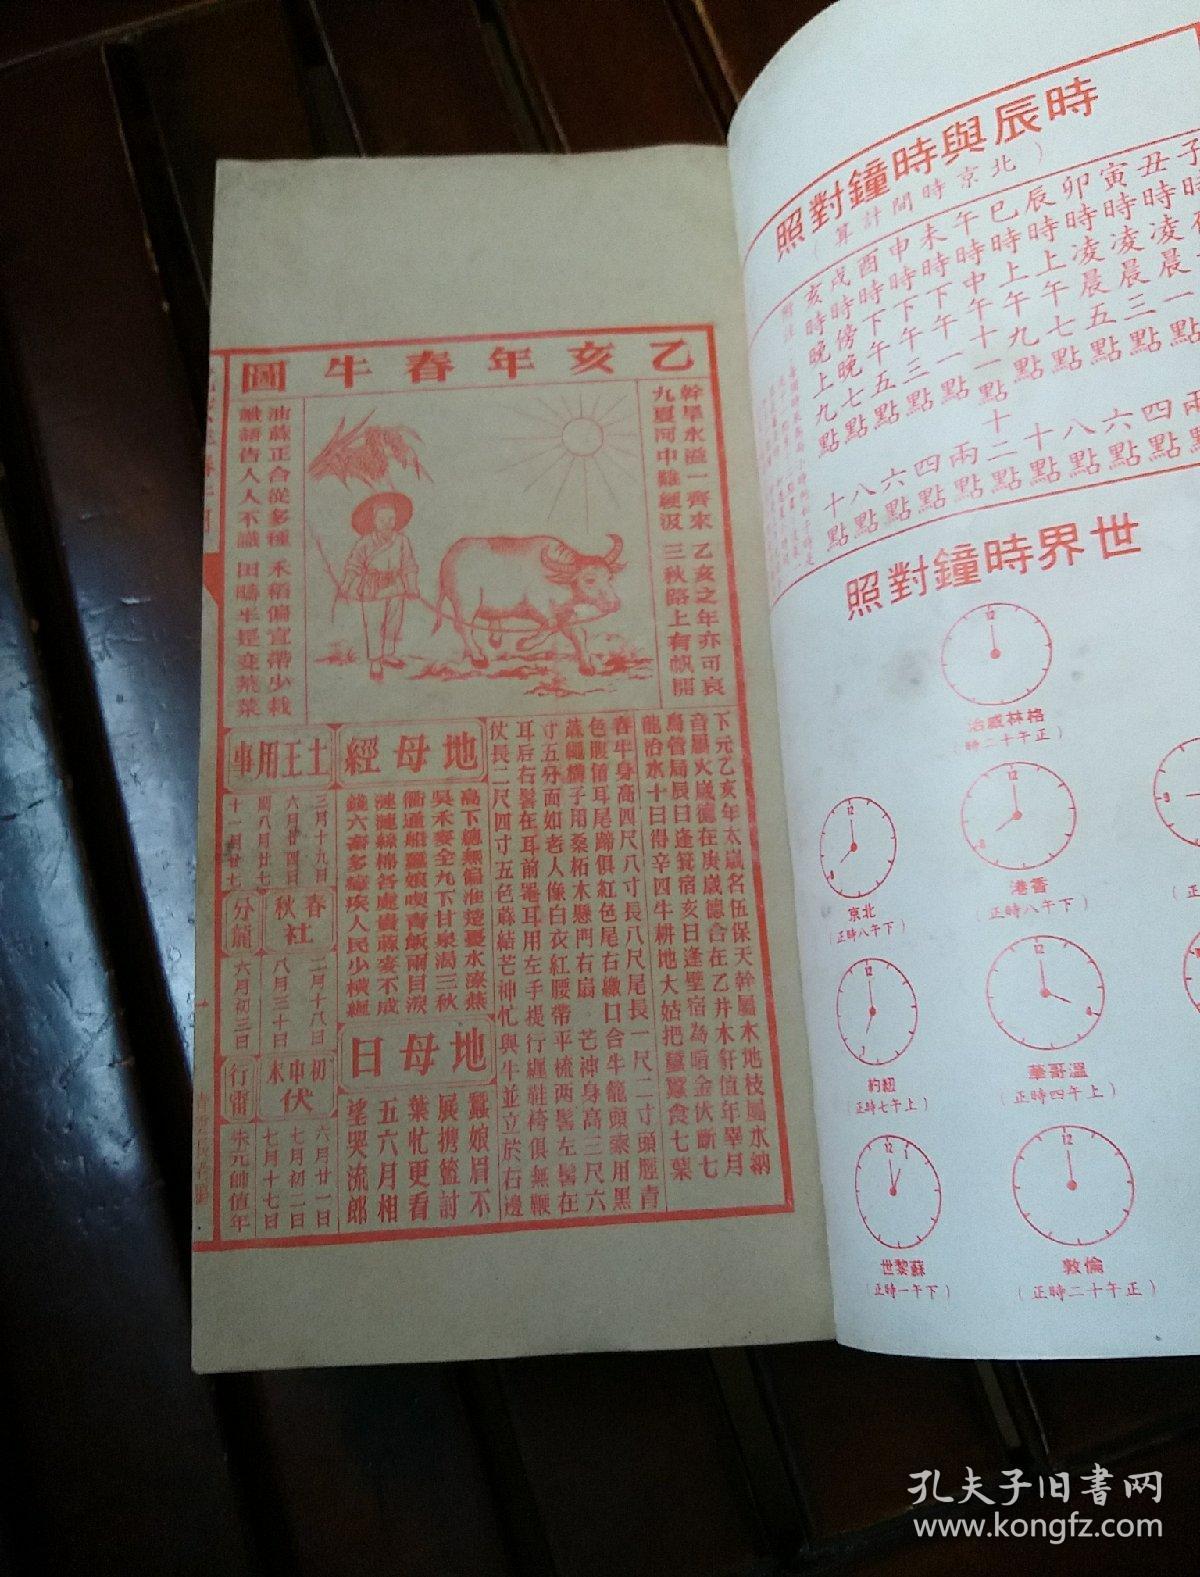 時辰與時鐘對照
（北京時間計算）
丑時 凌晨 一點
寅時 凌晨 三點
卯時 凌晨 五點
辰時 上午 七點
巳時 上午 九點
午時 中午 十一點
未時 下午 一點
申時 下午 三點
酉時 下午 五點
戌時 傍晚 七點
亥時 晚上 九點
世界時鐘對照
格林威治
（正午十二時）
香港
（下午八時正）
北京
（下午八時正）
溫哥華
（上午四時正）
紐約
（上午七時正）
倫敦
（正午十二時正）
蘇黎世
（下午一時正）
乙亥年春牛圖
幹旱水溢一齊來 乙亥之年亦可哀
九夏河中難經汲 三秋路上有帆開
油蔴正合從多種 禾稻偏宜帶少栽
讖語告人人不識 田疇半是変荒菜
下元乙亥年太歲名伍保天幹屬水地枝屬水納
音屬火歲德在庚歲德合在乙井木犴值年畢月
烏管局辰日逢箕宿亥日逢壁宿為暗金伏斷七
龍治水十日得辛四牛耕地大姑把蠶蠶食七葉
春牛身高四尺八寸長八尺尾長一尺二寸頭脛青
色腹俏耳尾蹄俱紅色尾右繳口合牛籠頭索用黑
蔴繩構子用桑柘木懸門右扇 芒神身高三尺六
寸五分面如老人像白衣紅腰帶平梳两髻左髻在
耳后右髻在耳前罨耳用左手提行纏鞋袴俱無鞭
仗長二尺四寸五色蔴結芒神忙與牛並立於右邊
地母經
高下總無偏淮楚憂水潦燕
吳禾麥全九下甘泉渴三秋
衢通船蠶娘喫青飯兩目淚
漣漣絲棉各處貴蔴麥不成
錢六畜多瘴疾人民少橫纏
地母曰
蠶娘眉不
展携籃討
葉忙更看
五六月相
望哭流郎
土王用事
三月十九日
六月廿四日
閏八月廿七
十一月廿七
春秋社
二月十八日
八月三十日
分龍
六月初三日
初中末伏
六月廿一日
七月初二日
七月十七日
行雷
朱元帥值年
孔夫子旧书网
www.kongfz.com